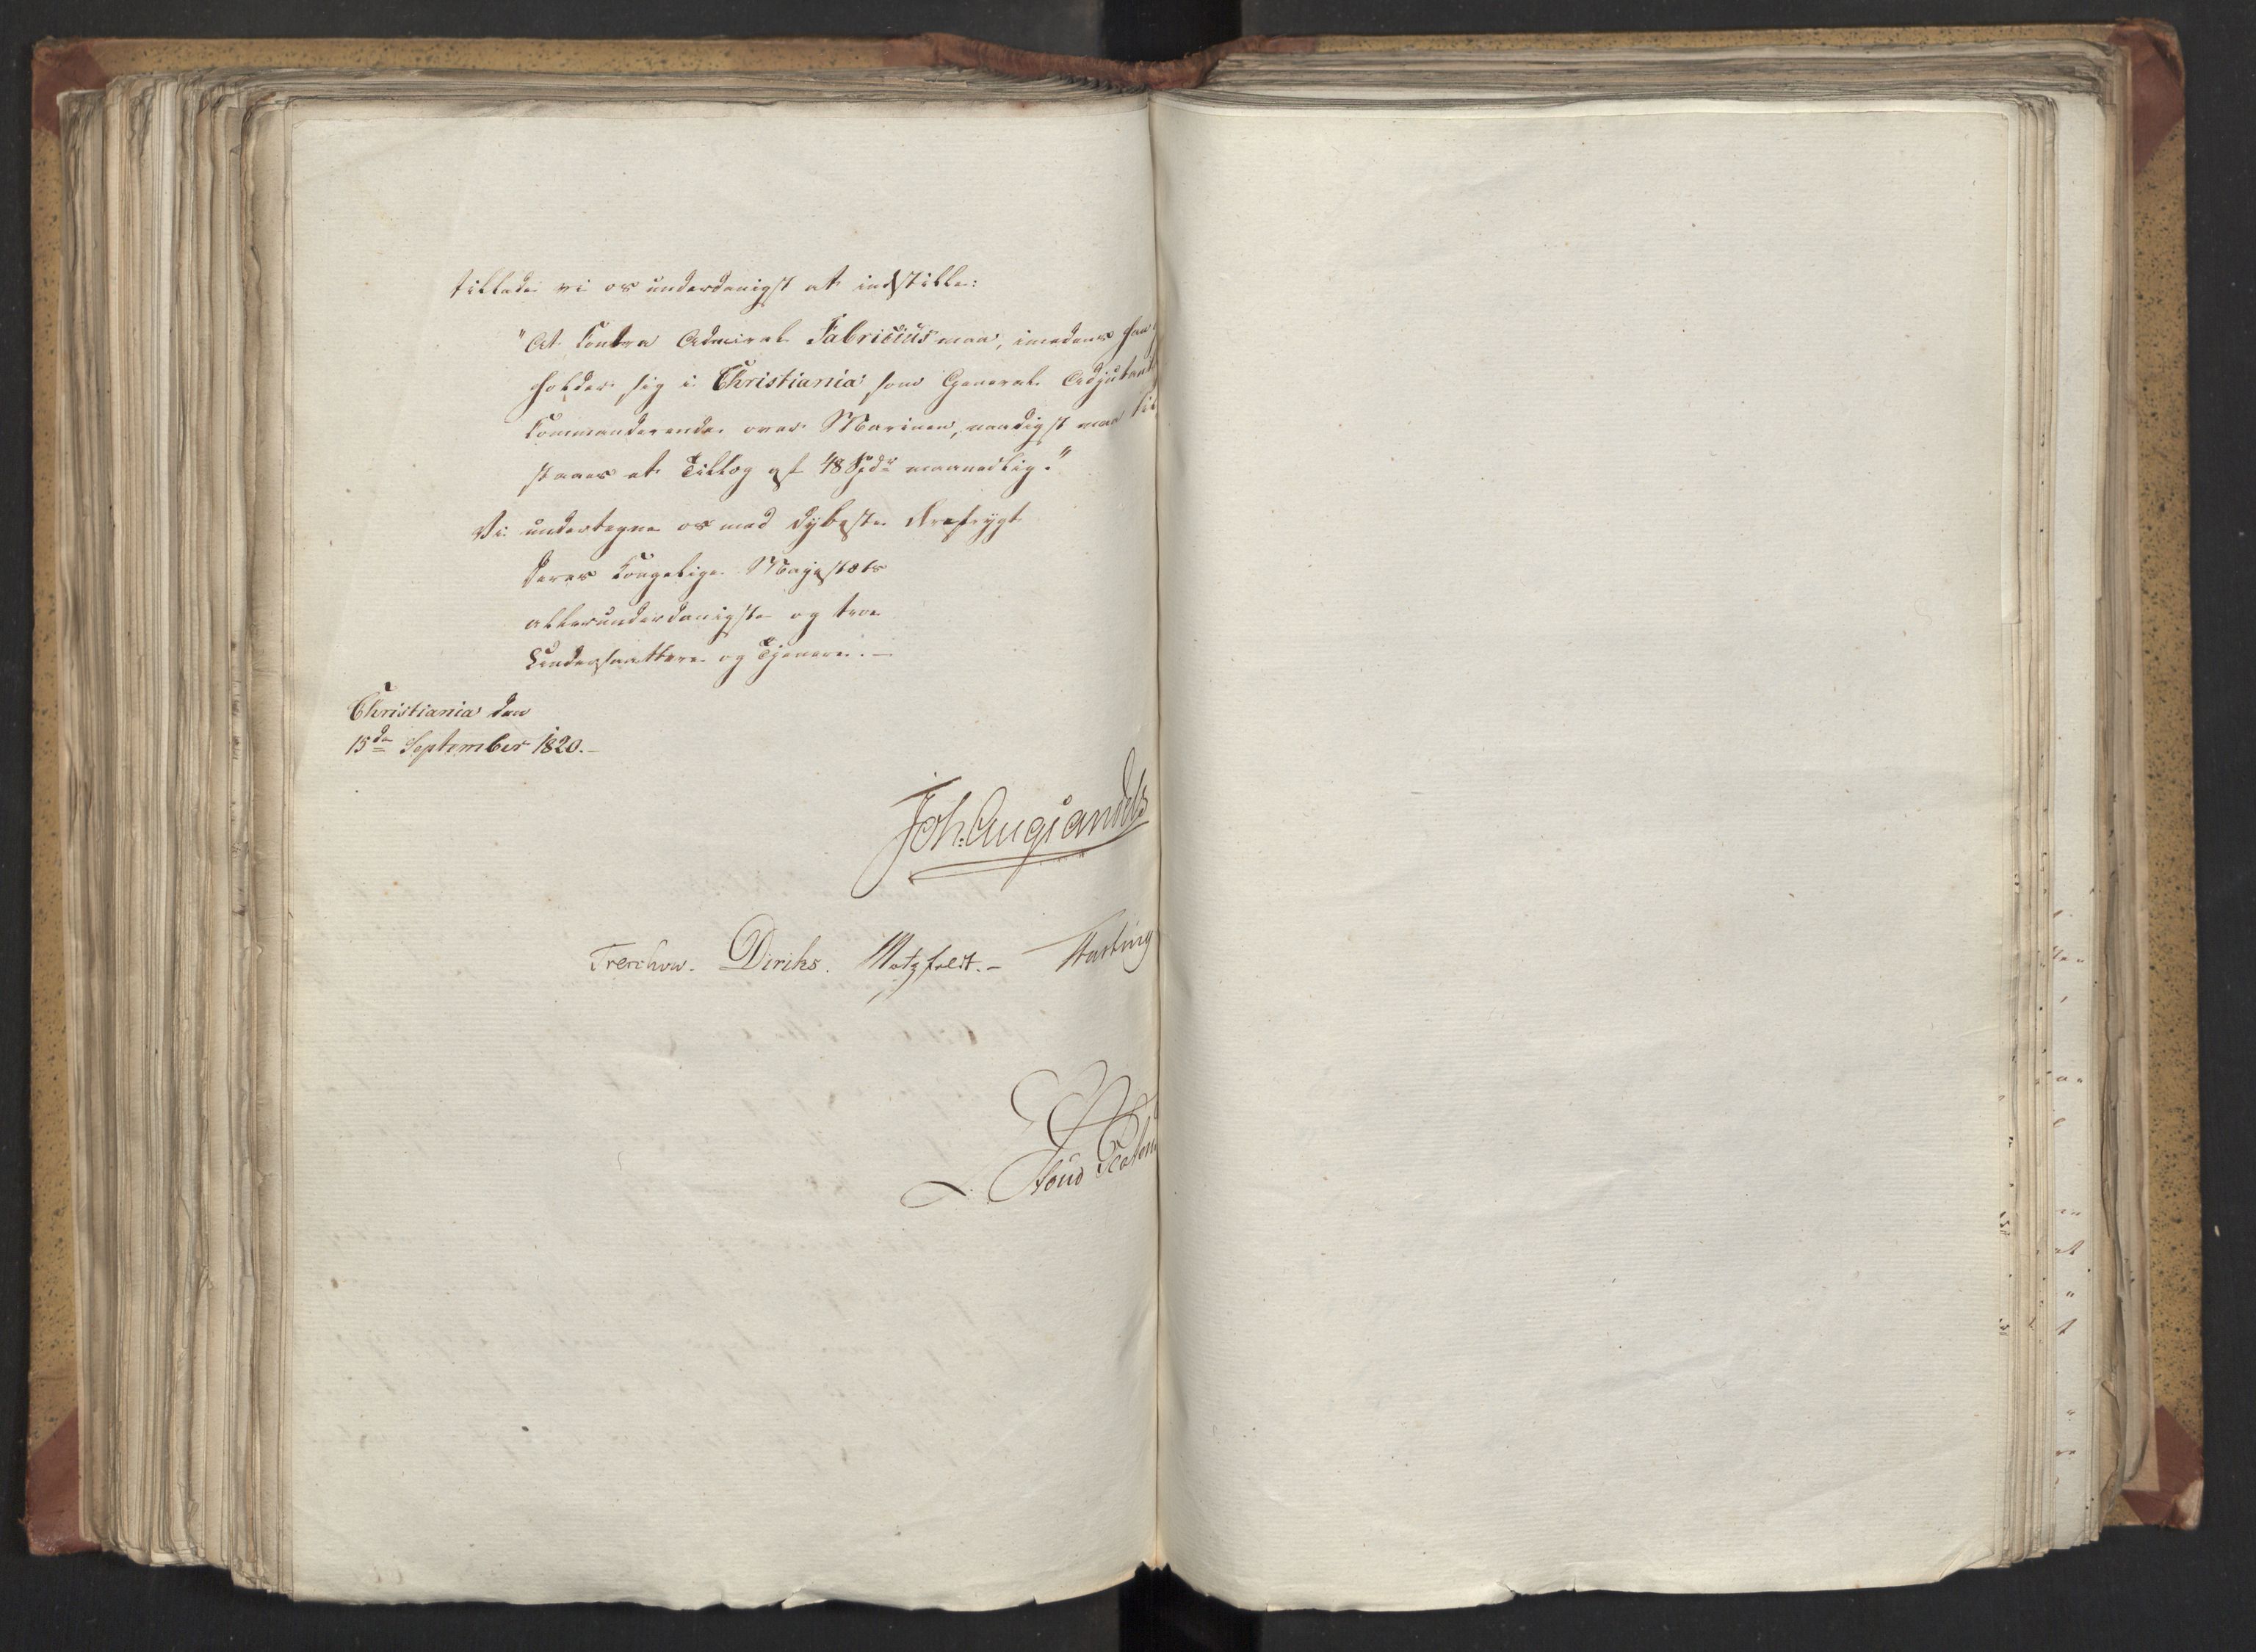 tillade vi os underdanigst at indstille:
"At Contra Admiral Fabricius maa, imedens han
holder sig i Christiania som General Adjutant
Commanderende over Marinen, naadigst maa til
staaes et Tillæg af 48 Spdr maanedlig."
Vi undertegne os med dybeste Ærefrygt
Deres Kongelige Majestæts
allerunderdanigste og troe
Undersaattere og Tjenere.-
Christiania den
15de September 1820.-
Joh. Aug Sandels
Treschow. Diriks. Motzfeldt.- Hasting